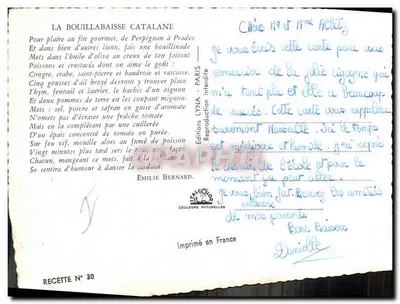 LA BOUILLABAISSE CATALANE
Pour plaire au fin gourmet, de Perpignan à Prades
Et dans bien d'autres lieux, fais une bouillinade
Mets dans l'huile d'olive au creux de ton faitout
Poissons et crustacés dont on aime le goût :
Congre, crabe, saint-pierre et baudroie et rascasse.
Cinq gousses d'ail broyé devront y trouver place.
Thym, fenouil et laurier, le buchis d'un oignon
Et deux pommes de terre en les coupant mignon
Mets : sel, poivre et safran en guise d'aromate
N'omets pas d'écraser une fraîche tomate
Mais en la complétant par une cuillerée
D'un épais concentré de tomate en purée.
Sur feu vif, mouille alors au fumet de poisson
Vingt minutes plus tard sers le tout
Chacun, mangeant ce mets, fait la
Se sentira d'humeur à danser la sardane
EMILIE BERNARD.
RECETTE N° 30
Imprimé en France
Editions LYNA - PARIS
Reproduction interdite
COULEURS NATURELLES
Mr et Mme
je vous écris cette carte pour vous
remercier de la jolie cigogne qui
m'a tant plu et elle a beaucoup
de succès. Cette carte vous rappellera
surement Marseille. Ici le temps
est et humide. j'ai repris
le chemin de l'école et pour le
moment ça
je vous fait les amitiés
de mes parents
Bons Baisers
Danielle